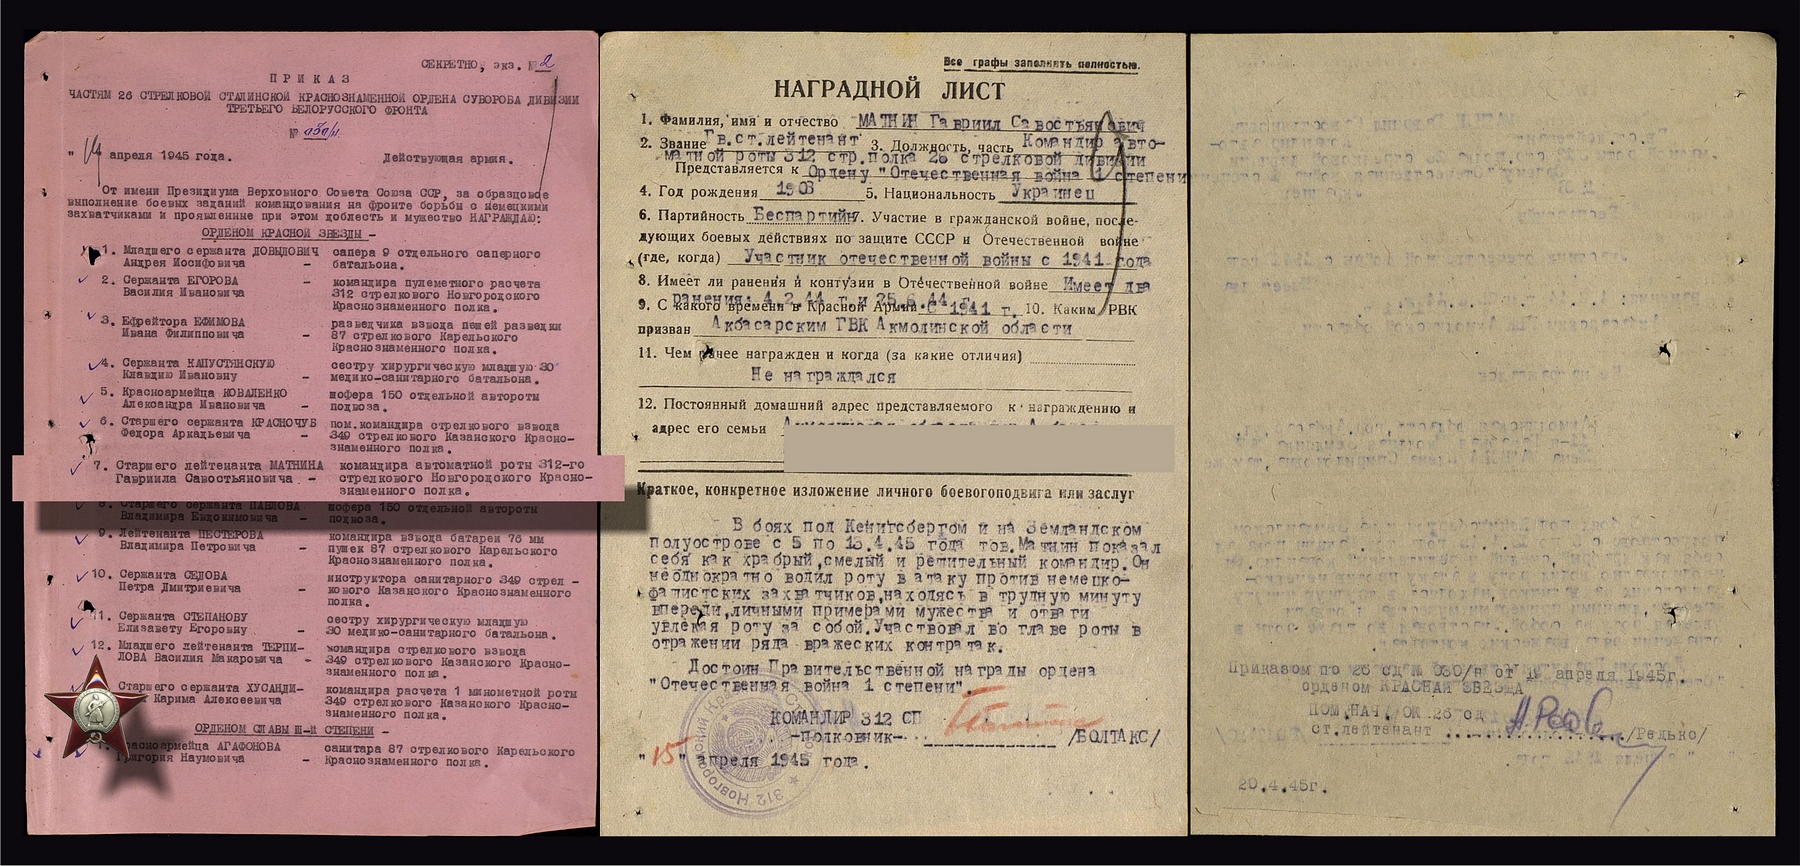 СЕКРЕТНО, экз. № 2
ПРИКАЗ
ЧАСТЯМ 26 СТРЕЛКОВОЙ СТАЛИНСКОЙ КРАСНОЗНАМЕННОЙ ОРДЕНА СУВОРОВА ДИВИЗИИ
ТРЕТЬЕГО БЕЛОРУССКОГО ФРОНТА
№ 030/н
"19 апреля 1945 года. Действующая армия.
От имени Президиума Верховного Совета Союза ССР, за образцовое
выполнение боевых заданий командования на фронте борьбы с немецкими
захватчиками и проявленные при этом доблесть и мужество НАГРАЖДАЮ:
ОРДЕНОМ КРАСНОЙ ЗВЕЗДЫ -
1. Младшего сержанта ДОВЫДОВИЧ сапера 9 отдельного саперного
Андрея Иосифовича - батальона.
2. Сержанта ЕГОРОВА командира пулеметного расчета
Василия Ивановича - 312 стрелкового Новгородского
Краснознаменного полка.
3. Ефрейтора ЕФИМОВА разведчика взвода пешей разведки
Ивана Филипповича - 87 стрелкового Карельского
Краснознаменного полка.
4. Сержанта КАПУСТЯНСКУЮ сестру хирургическую младшую 30
Клавдию Ивановну - медико-санитарного батальона.
5. Красноармейца КОВАЛЕНКО шофера 150 отдельной автороты
Александра Ивановича - подвоза.
6. Старшего сержанта КРАСНОЧУБ пом.командира стрелкового взвода
Федора Аркадьевича - 349 стрелкового Казанского Красно-
знаменного полка.
7. Старшего лейтенанта МАТНИНА командира автоматной роты 312-го
Гавриила Савостьяновича - стрелкового Новгородского Красно-
знаменного полка.
8. Старшего сержанта ПАВЛОВА шофера 150 отдельной автороты
Владимира Евдокимовича - подвоза.
9. Лейтенанта ПЕСТЕРОВА командира взвода батареи 76 мм
Владимира Петровича - пушек 87 стрелкового Карельского
Краснознаменного полка.
10. Сержанта СЕДОВА инструктора санитарного 349 стрел -
Петра Дмитриевича - кового Казанского Краснознаменного
полка.
11. Сержанта СТЕПАНОВУ сестру хирургическую младшую
Елизавету Егоровну - 30 медико-санитарного батальона.
12. Младшего лейтенанта ТЕРПИ- командира стрелкового взвода
ЛОВА Василия Макаровича - 349 стрелкового Казанского Красно-
знаменного полка.
Старшего сержанта ХУСАНДИ- командира расчета 1 минометной роты
Карима Алексеевича - 349 стрелкового Казанского Красно-
знаменного полка.
ОРДЕНОМ СЛАВЫ Ш-й СТЕПЕНИ -
1. Красноармейца АГАФОНОВА санитара 87 стрелкового Карельского
Григория Наумовича - Краснознаменного полка.
Все графы заполнять полностью.
НАГРАДНОЙ ЛИСТ
1. Фамилия, имя и отчество МАТНИН Гавриил Савостьянович
2. Звание Гв.ст.лейтенант 3. Должность, часть Командир авто-
матной роты 312 стр.полка 26 стрелковой дивизии
Представляется к Ордену "Отечественная война 1 степени
4. Год рождения 1903 5. Национальность Украинец
6. Партийность Беспартийн 7. Участие в гражданской войне, после-
дующих боевых действиях по защите СССР и Отечественной войне
(где, когда) Участник отечественной войны с 1941 года
8. Имеет ли ранения и контузии в Отечественной войне Имеет два
ранения: 4.2.44 г. и 25.6.44 г.
9. С какого времени в Красной Армии С 1941 г. 10. Каким РВК
призван Акбасарским ГВК Акмолинской области
11. Чем ранее награжден и когда (за какие отличия)
Не награждался
12. Постоянный домашний адрес представляемого к награждению и
адрес его семьи
Краткое, конкретное изложение личного боевого подвига или заслуг
В боях под Кенигсбергом и на Земландском
полуострове с 5 по 13.4.45 года тов.Матнин показал
себя как храбрый,смелый и решительный командир.Он
неоднократно водил роту в атаку против немецко-
фашистских захватчиков,находясь в трудную минуту
впереди,личными примерами мужества и отваги
увлекая роту за собой.Участвовал во главе роты в
отражении ряда вражеских контратак.
Достоин Правительственной награды ордена
"Отечественная война 1 степени".
КОМАНДИР 312 СП
-Полковник- /БОЛТАКС/
"15" апреля 1945 года.
312 Новгородский
Приказом по 26 сд № 030/н от 19 апреля 1945г.
орденом КРАСНАЯ ЗВЕЗДА
ПОМ.НАЧ. ОК 26 сд
ст.лейтенант /Редько/
20.4.45г.